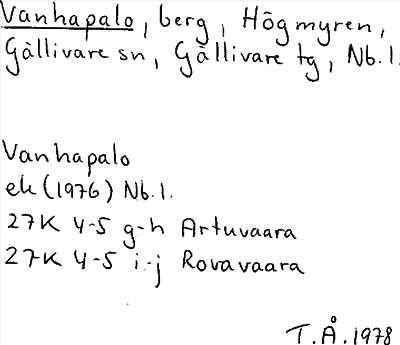 Vanhapalo, berg, Högmyren,
Gällivare sn, Gällivare tg, Nb.l.
Vanhapalo
ek (1976) Nb.l.
27K 4-5 g-h Artuvaara
27K 4-5 i-j Rovavaara
T.Å. 1978